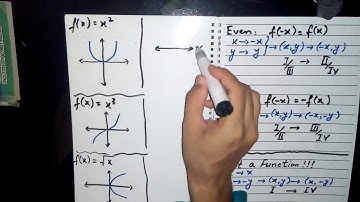 f(x) = x²
f(x) = x³
f(x) = √x
Even: f(-x) = f(x)
x → -x
y → y
(x,y) → (-x,y)
I/III → II/IV
f(-x) = -f(x)
(x,y) → (-x,-y)
I/II → III/IV
a Function!!!
→ x
→ -y
(x,y) → (x,-y)
I → IV